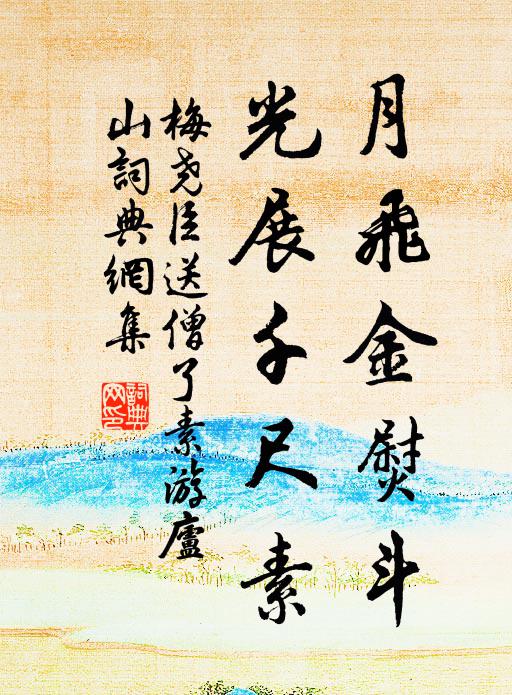 月飛金熨斗
光展千尺素
梅堯臣送僧了素游廬
山詞典網集
詞典
网印